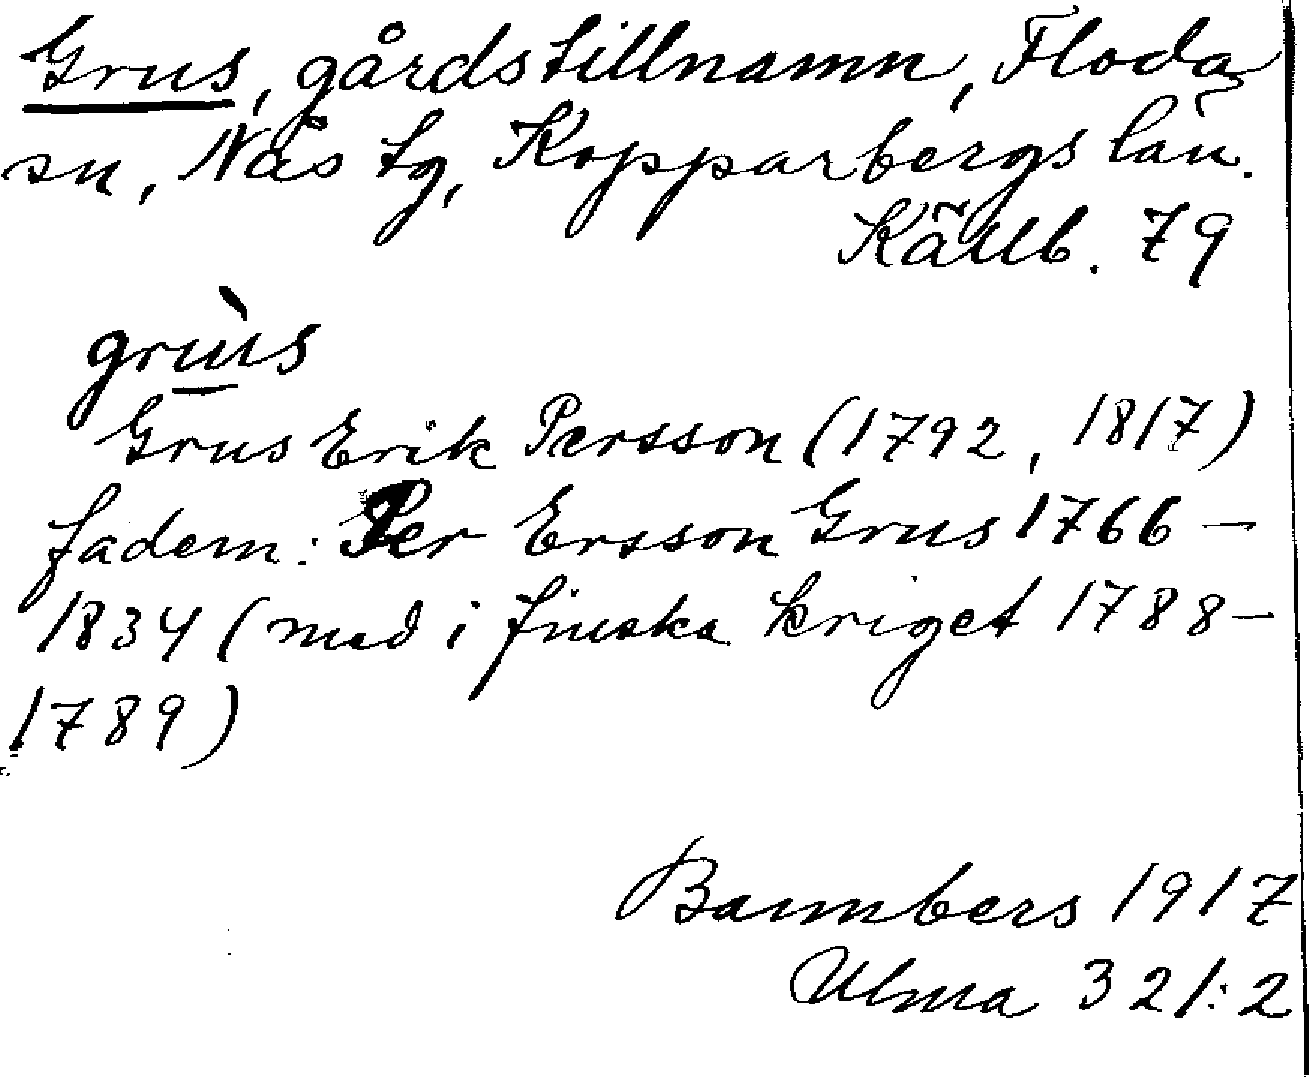 Grus, gårdstillnamn, Floda
sn, Nås tg, Kopparbergs län.
Källb. 79
grùs
Grus Erik Persson (1792, 1817)
fadern: Per Ersson Grus 1766 –
1834 (med i finska kriget 1788 –
1789)
Bannbers 1917
Ulma 321:2